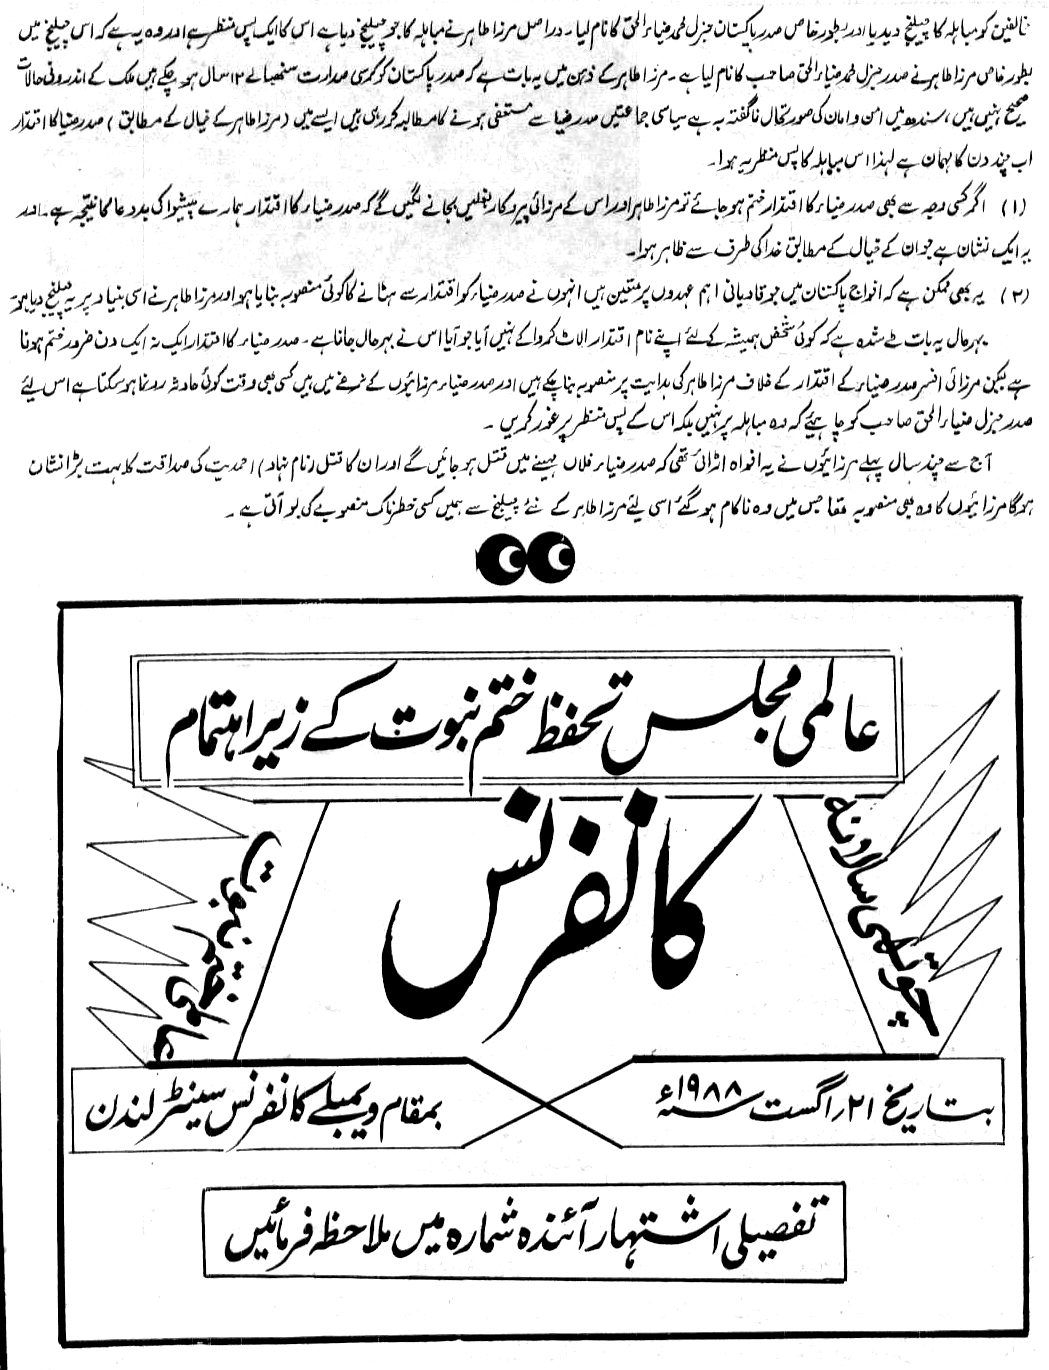 مخالفین کو مباہلہ کا چیلنج دیدیا اور بطور خاص صدر پاکستان جنرل محمد ضیاء الحق کا نام لیا۔ دراصل مرزا طاہر نے مباہلہ کا جو چیلنج دیا ہے اس کا ایک پس منظر ہے اور وہ یہ ہے کہ اس چیلنج میں
بطور خاص مرزا طاہر نے صدر جنرل محمد ضیاء الحق صاحب کا نام لیا ہے۔ مرزا طاہر کے ذہن میں یہ بات ہے کہ صدر پاکستان کو کرسی صدارت سنبھالے ۱۲ سال ہو چکے ہیں ملک کے اندرونی حالات
صحیح نہیں ہیں، سندھ میں امن و امان کی صورتحال ناگفتہ بہ ہے سیاسی جماعتیں صدر ضیا سے مستعفی ہونے کا مطالبہ کر رہی ہیں ایسے میں (مرزا طاہر کے خیال کے مطابق) صدر ضیا کا اقتدار
اب چند دن کا مہمان ہے لہذا اس مباہلہ کا پس منظر یہ ہوا۔
(۱) اگر کسی وجہ سے بھی صدر ضیاء کا اقتدار ختم ہو جائے تو مرزا طاہر اور اس کے مرزائی پیروکار بغلیں بجانے لگیں گے کہ صدر ضیاء کا اقتدار ہمارے پیشوا کی بددعا کا نتیجہ ہے۔ اور
یہ ایک نشان ہے جو ان کے خیال کے مطابق خدا کی طرف سے ظاہر ہوا۔
(۲) یہ بھی ممکن ہے کہ افواج پاکستان میں جو قادیانی اہم عہدوں پر متعین ہیں انہوں نے صدر ضیاء کو اقتدار سے ہٹانے کا کوئی منصوبہ بنایا ہو اور مرزا طاہر نے اسی بنیاد پر یہ چیلنج دیا ہو۔
بہرحال یہ بات طے شدہ ہے کہ کوئی شخص ہمیشہ کے لئے اپنے نام اقتدار الاٹ کروا کے نہیں آیا جو آیا اس نے بہرحال جانا ہے۔ صدر ضیاء کا اقتدار ایک نہ ایک دن ضرور ختم ہونا
ہے لیکن مرزائی افسر صدر ضیاء کے اقتدار کے خلاف مرزا طاہر کی ہدایت پر منصوبہ بنا چکے ہیں اور صدر ضیاء مرزائیوں کے نرغے میں ہیں کسی بھی وقت کوئی حادثہ رونما ہو سکتا ہے اس لئے
صدر جنرل ضیاء الحق صاحب کو چاہیئے کہ وہ مباہلہ پر نہیں بلکہ اس کے پس منظر پر غور کریں۔
آج سے چند سال پہلے مرزائیوں نے یہ افواہ اڑائی تھی کہ صدر ضیاء فلاں مہینے میں قتل ہو جائیں گے اور ان کا قتل (نام نہاد) احمدیت کی صداقت کا بہت بڑا نشان
ہوگا مرزائیوں کا وہ بھی منصوبہ تھا جس میں وہ ناکام ہو گئے اسی لیئے مرزا طاہر کے نئے چیلنج سے ہمیں کسی خطرناک منصوبے کی بو آتی ہے۔
عالمی مجلس تحفظ ختم نبوت کے زیر اہتمام
چوتھی سالانہ
عالمی ختم نبوت
کانفرنس
بتاریخ ۲۱ / اگست سنہ ۱۹۸۸ء
بمقام ویمبلے کانفرنس سینٹر لندن
تفصیلی اشتہار آئندہ شمارہ میں ملاحظہ فرمائیں